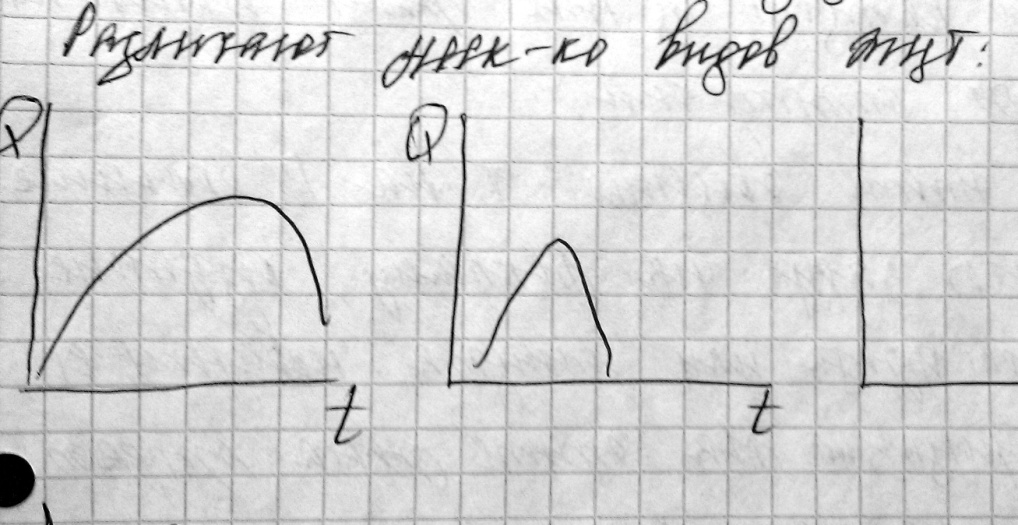 Различают неск-ко видов
Q Q
t t